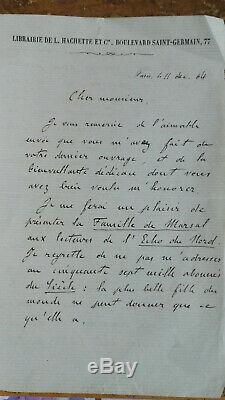 LIBRAIRIE DE L. HACHETTE ET Cie, BOULEVARD SAINT-GERMAIN, 77
Paris, le 11 dec. 64
Cher monsieur,
Je vous remercie de l'aimable
envoi que vous m'avez fait de
votre dernier ouvrage et de la
bienveillante dédicace dont vous
avez bien voulu m'honorer.
Je me ferai un plaisir de
présenter la Famille de Marsal
aux lecteurs de l'Echo du Nord.
Je regrette de ne pas m'adresser
au cinquante sept mille abonnés
du Siècle : la plus belle fille du
monde ne peut donner que ce
qu'elle a.
hidden_treasures